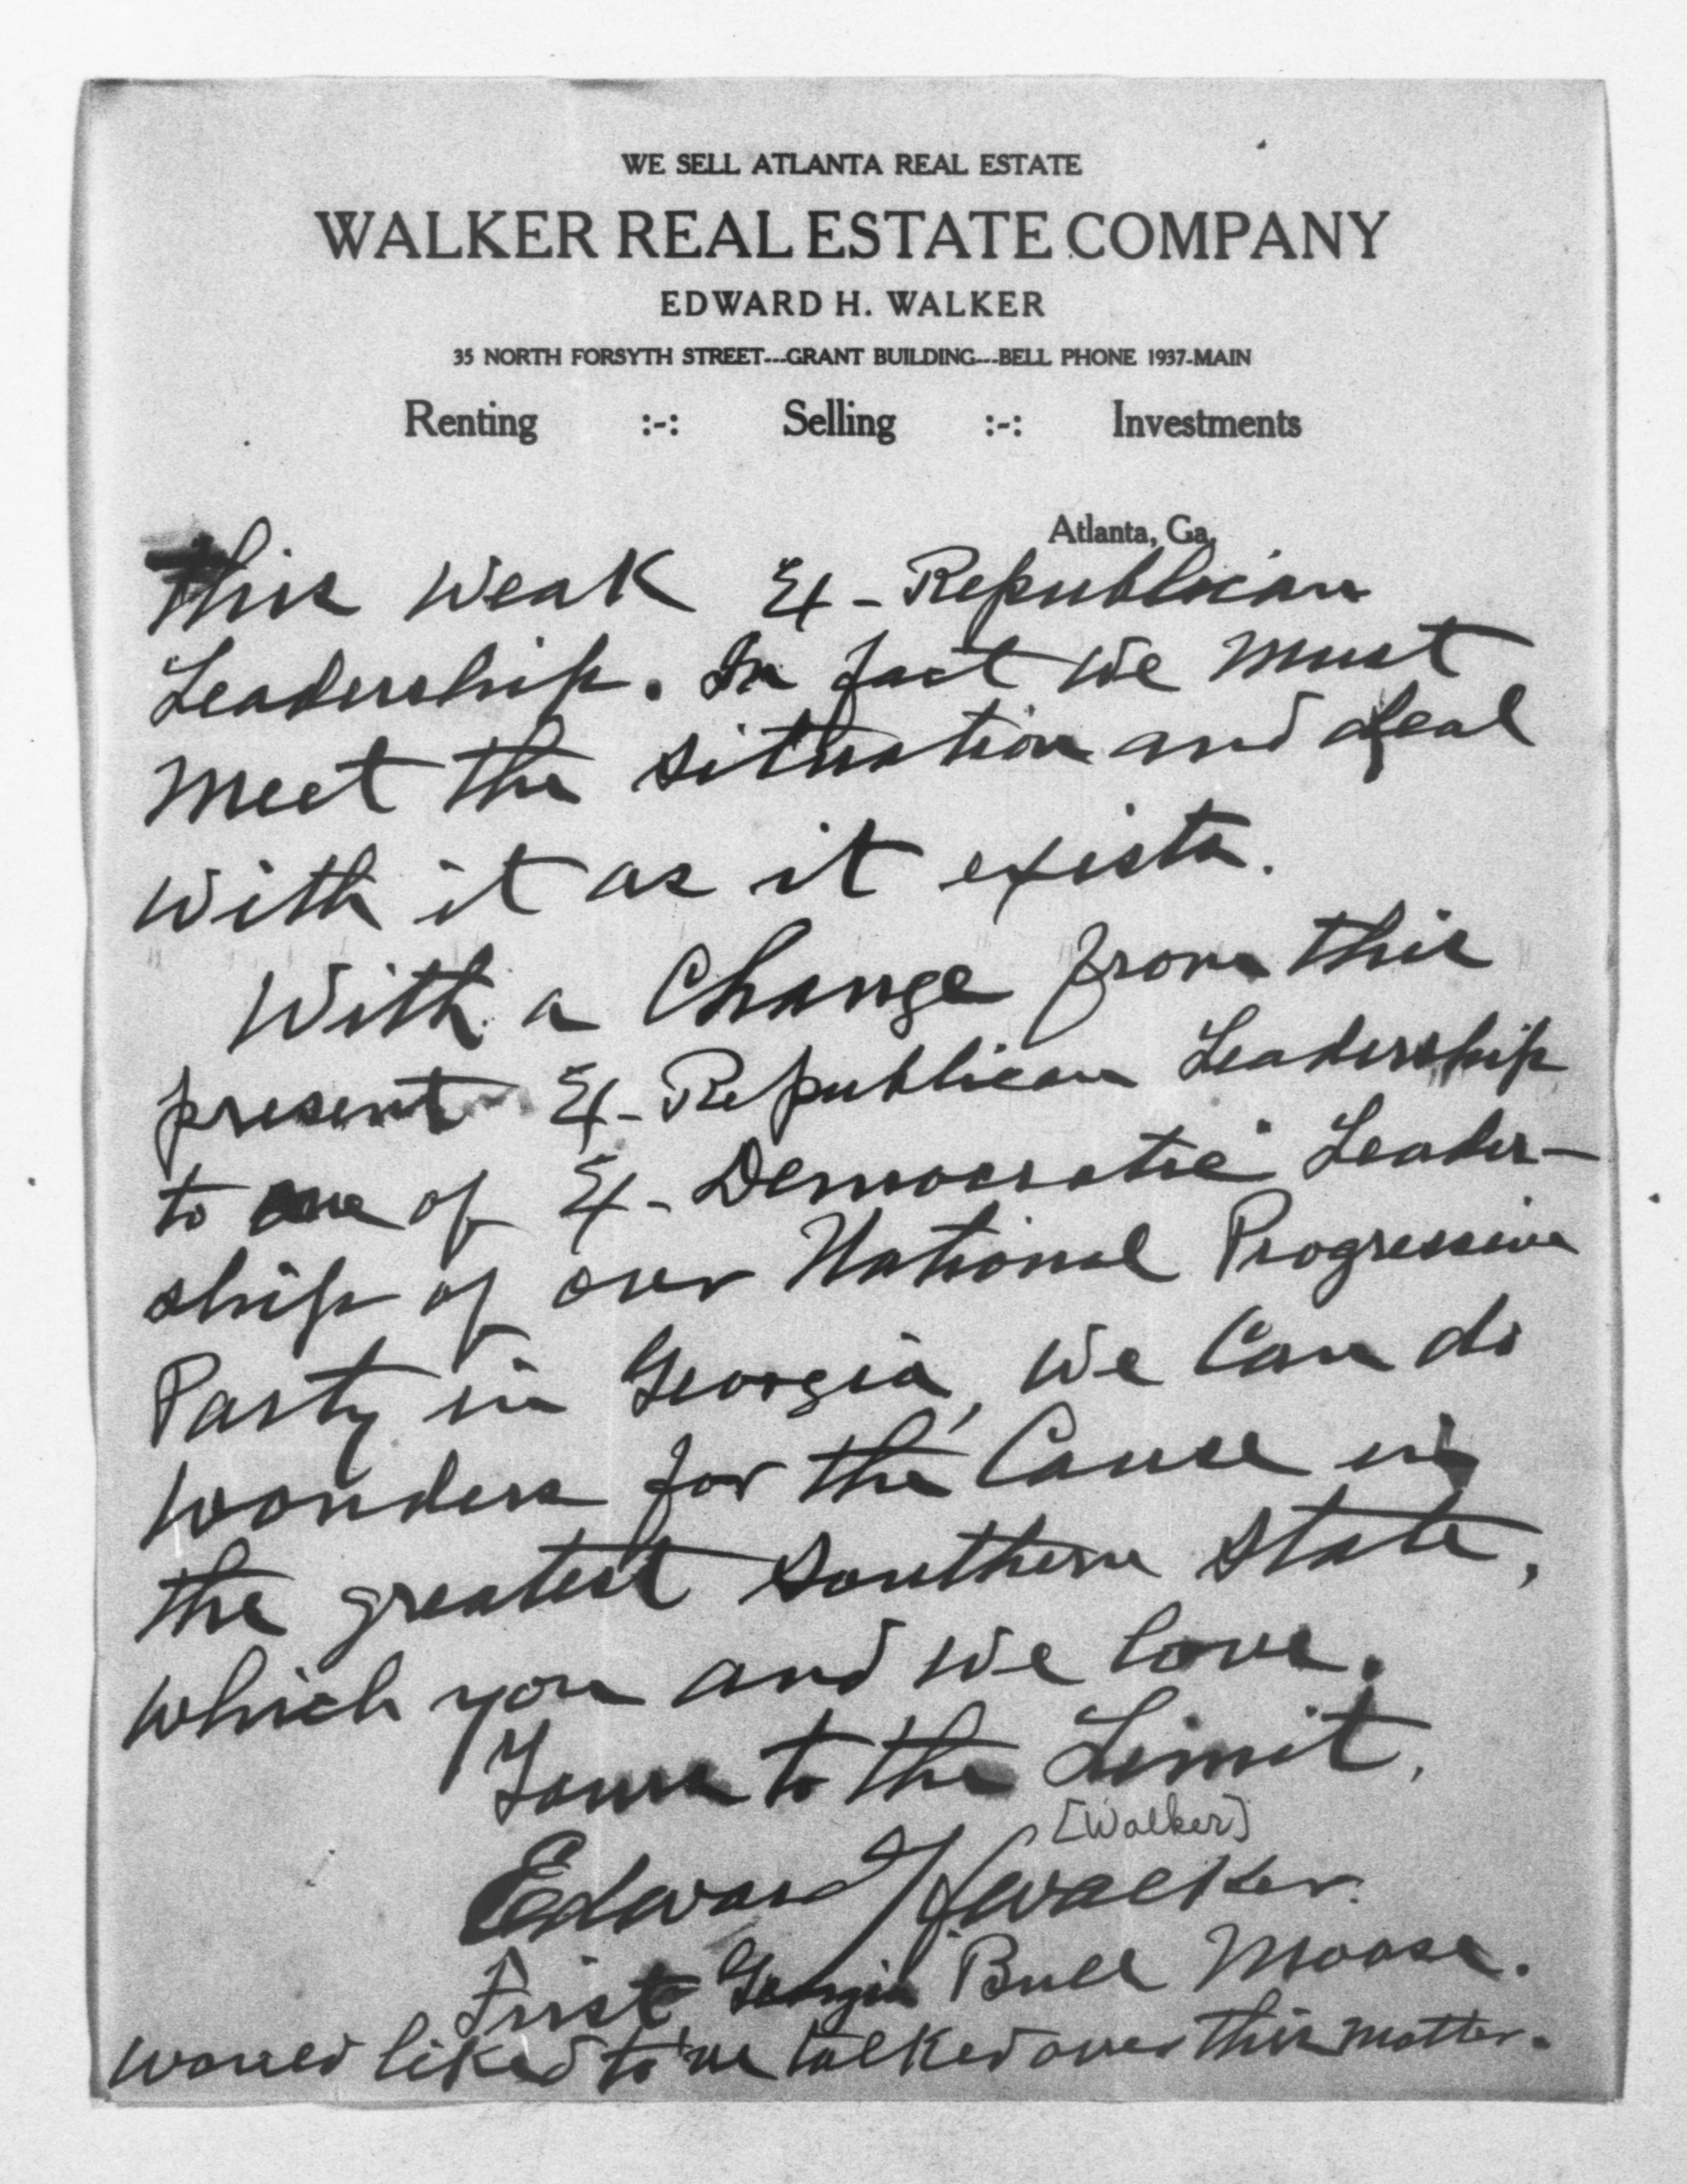 WE SELL ATLANTA REAL ESTATE
WALKER REAL ESTATE COMPANY
EDWARD H. WALKER
35 NORTH FORSYTH STREET---GRANT BUILDING---BELL PHONE 1937-MAIN
Renting :-: Selling :-: Investments
Atlanta, Ga.
this weak Ex-Republican
Leadership. In fact we must
meet the situation and deal
with it as it exists.
With a Change from this
present Ex-Republican Leadership
to one of Ex-Democratic Leader-
ship of our National Progressive
Party in Georgia, we Can do
wonders for the Cause in
the greatest Southern State,
which you and we love.
Yours to the Limit,
[Walker]
Edward H Walker.
First Georgia Bull Moose.
would liked to've talked over this matter.